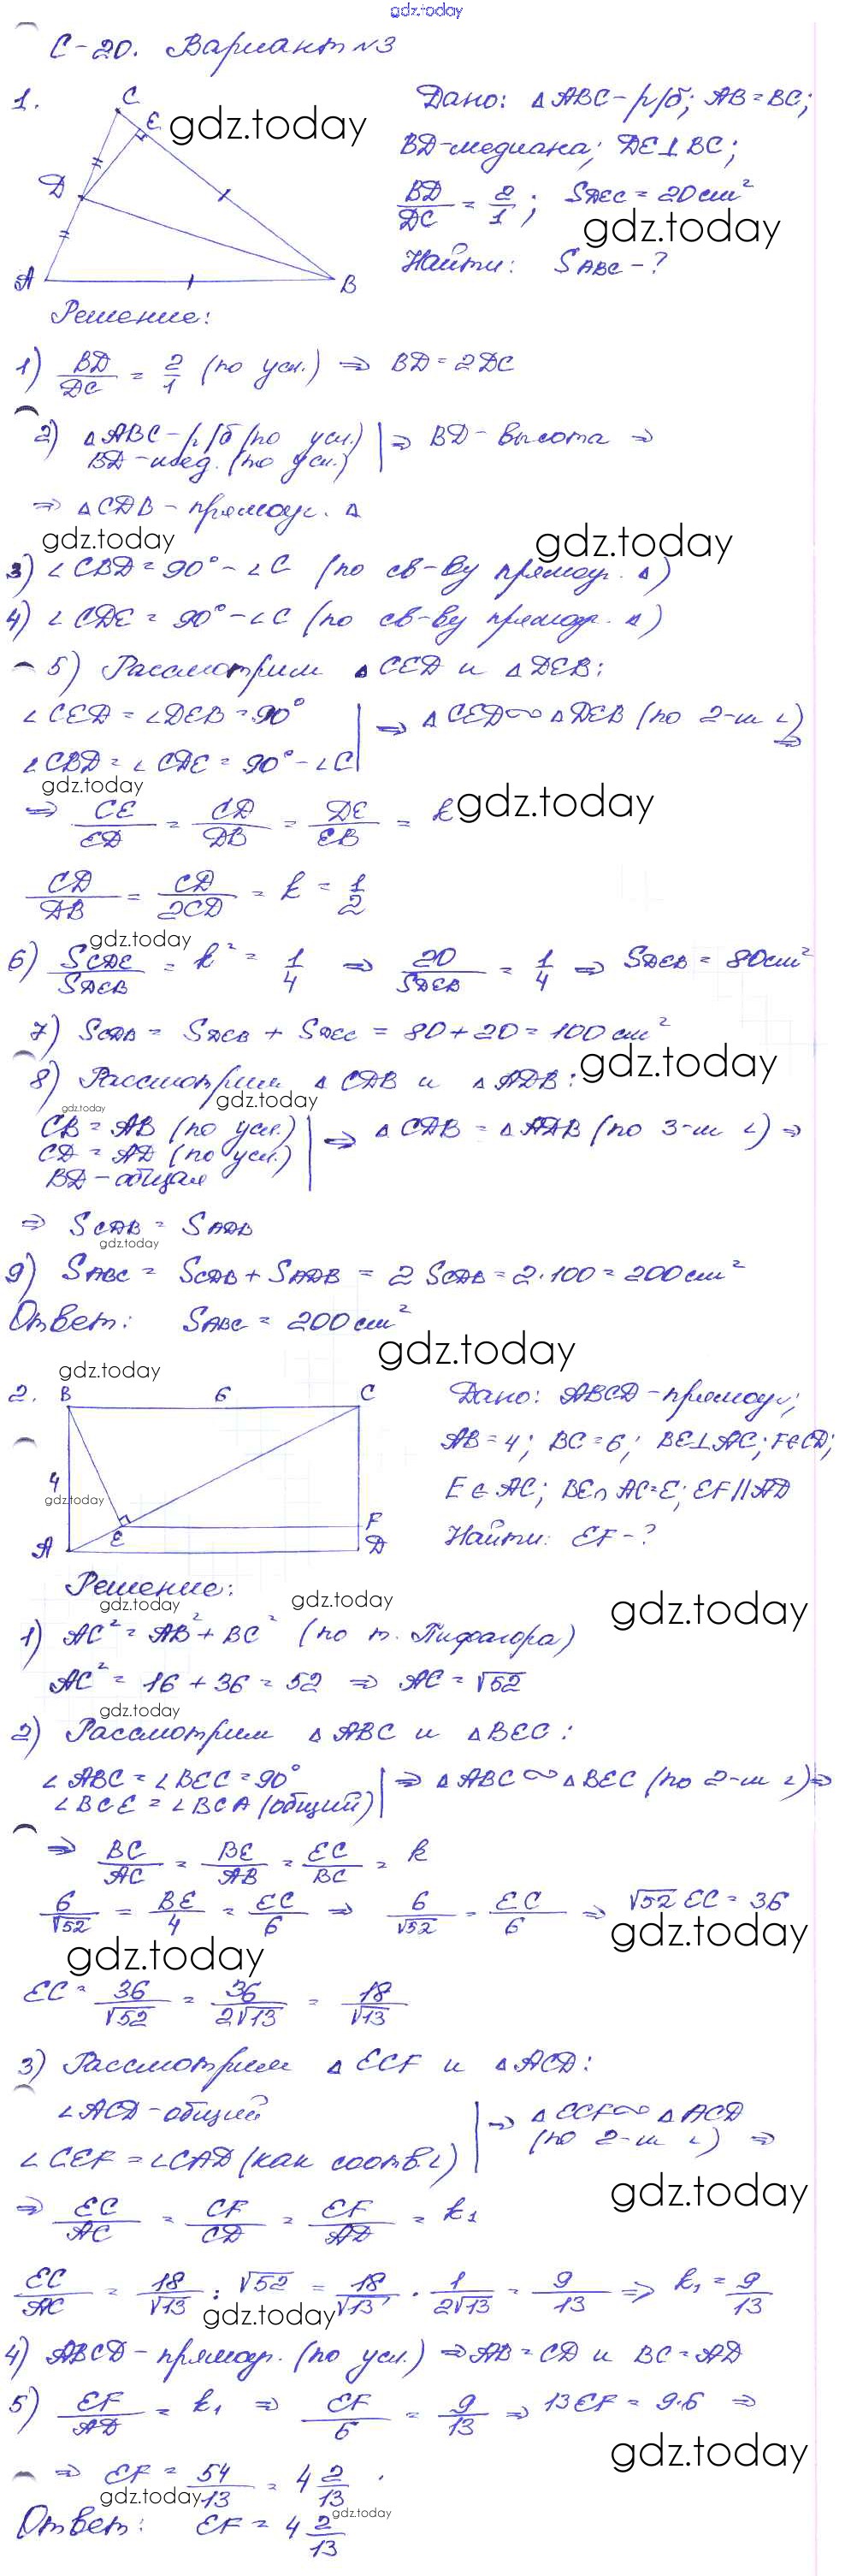 gdz.today
С-20. Вариант №3
1.
C
E
D
A
B
gdz.today
Дано: △ABC-р/б; AB=BC;
BD-медиана; DE⊥BC;
BD/DC = 2/1; SDEC = 20 см²
gdz.today
Найти: SABC-?
Решение:
1) BD/DC = 2/1 (по усл.) ⇒ BD=2DC
2) △ABC-р/б (по усл.) | ⇒ BD-высота ⇒
BD-мед. (по усл.)
⇒ △CDB-прямоуг. △
gdz.today gdz.today
3) ∠CBD=90°-∠C (по св-ву прямоуг. △)
4) ∠CDE=90°-∠C (по св-ву прямоуг. △)
5) Рассмотрим △CED и △DEB:
∠CED=∠DEB=90° | ⇒ △CED∞△DEB (по 2-м ∠) ⇒
∠CBD=∠CDE=90°-∠C
gdz.today gdz.today
⇒ CE/ED = CD/DB = DE/EB = k
CD/DB = CD/2CD = k = 1/2
gdz.today
6) SCDE/SDEB = k² = 1/4 ⇒ 20/SDEB = 1/4 ⇒ SDEB=80см²
7) SCDB = SDEB + SDEC = 80+20=100 см²
gdz.today
8) Рассмотрим △CDB и △ADB:
gdz.today gdz.today
CB=AB (по усл.) | ⇒ △CDB=△ADB (по 3-м ∠) ⇒
CD=AD (по усл.)
BD-общая
⇒ SCDB=SADB
gdz.today
9) SABC = SCDB+SADB = 2SCDB=2·100=200см²
Ответ: SABC = 200 см²
gdz.today
gdz.today
2.
B
6
C
4
gdz.today
E
F
A
D
Дано: ABCD-прямоуг;
AB=4; BC=6; BE⊥AC; F∈CD;
E∈AC; BE∩AC=E; EF||AD
Найти: EF-?
Решение:
gdz.today gdz.today gdz.today
1) AC²=AB²+BC² (по т. Пифагора)
AC²=16+36=52 ⇒ AC=√52
gdz.today
2) Рассмотрим △ABC и △BEC:
∠ABC=∠BEC=90° | ⇒ △ABC∞△BEC (по 2-м ∠) ⇒
∠BCE=∠BCA (общий)
⇒ BC/AC = BE/AB = EC/BC = k
6/√52 = BE/4 = EC/6 ⇒ 6/√52 = EC/6 ⇒ √52 EC=36
gdz.today gdz.today
EC = 36/√52 = 36/2√13 = 18/√13
3) Рассмотрим △ECF и △ACD:
∠ACD-общий | ⇒ △ECF∞△ACD
∠CEF=∠CAD (как соотв.∠) (по 2-м ∠) ⇒
gdz.today
⇒ EC/AC = CF/CD = EF/AD = k₁
EC/AC = 18/√13 : √52 = 18/√13 · 1/2√13 = 9/13 ⇒ k₁=9/13
gdz.today
4) ABCD-прямоуг. (по усл.) ⇒ AB=CD и BC=AD
5) EF/AD = k₁ ⇒ EF/6 = 9/13 ⇒ 13EF=9·6 ⇒
gdz.today
⇒ EF = 54/13 = 4 2/13.
gdz.today gdz.today
Ответ: EF = 4 2/13